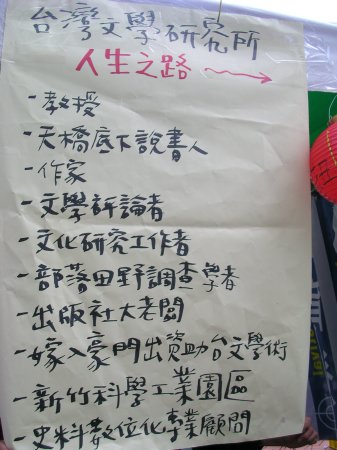 台灣文學研究所
人生之路
-教授
-天橋底下說書人
-作家
-文學評論者
-文化研究工作者
-部落田野調查學者
-出版社大老闆
-嫁入豪門出資助台文學術
-新竹科學工業園區
-史料數位化專業顧問